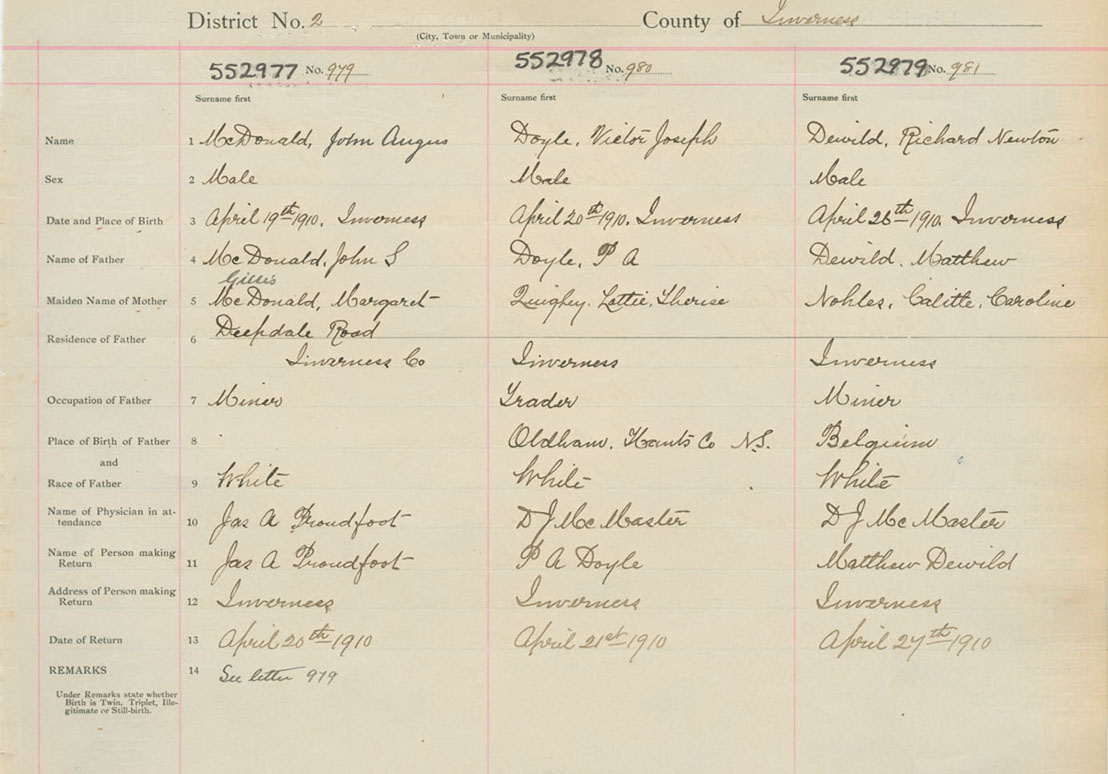 District No. 2 County of Inverness
(City, Town or Municipality)
552977 No. 979 552978 No. 980 552979 No. 981
Surname first Surname first Surname first
Name 1 McDonald, John Angus Doyle, Victor Joseph Dewild, Richard Newton
Sex 2 Male Male Male
Date and Place of Birth 3 April 19th 1910. Inverness April 20th 1910. Inverness April 26th 1910. Inverness
Name of Father 4 McDonald, John S Doyle, P A Dewild. Matthew
Gillis
Maiden Name of Mother 5 McDonald, Margaret Quigley, Lottie, Therise Nohles, Calitte, Caroline
Residence of Father 6 Deepdale Road
Inverness Co Inverness Inverness
Occupation of Father 7 Miner Trader Miner
Place of Birth of Father 8 Oldham, Hants Co N.S. Belgium
and
Race of Father 9 White White White
Name of Physician in at-
tendance 10 Jas A Proudfoot D J McMaster D J McMaster
Name of Person making
Return 11 Jas A Proudfoot P A Doyle Matthew Dewild
Address of Person making
Return 12 Inverness Inverness Inverness
Date of Return 13 April 20th 1910 April 21st 1910 April 27th 1910
REMARKS 14 See letter 979
Under Remarks state whether
Birth is Twin, Triplet, Ille-
gitimate or Still-birth.